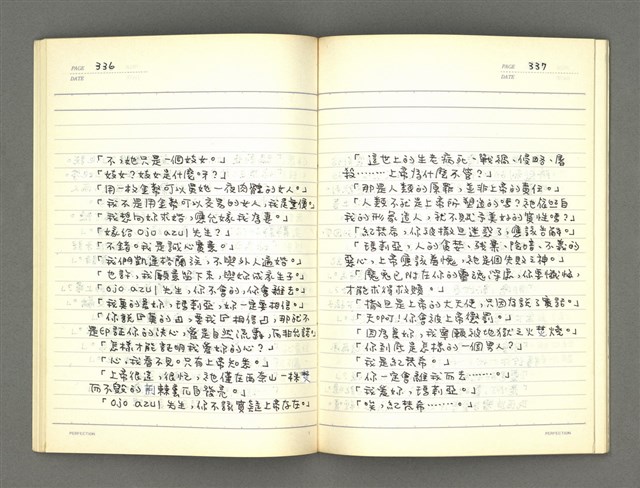 PAGE 336
DATE
「不，她只是一個妓女。」
「妓女？妓女是什麼呀？」
「用一枚金幣可以買她一夜肉體的女人。」
「我不是用金幣可以交易的女人，我是
「我想向妳求婚，應允嫁我為妻。」
「嫁給 ojo azul 先生？」
「不錯。我是誠心實意。」
「我們凱達格蘭族，不與外人通婚。」
「也許，我願意留下來，與妳成家生子。」
「ojo azul 先生，你不會的，你會離去。」
「我真的愛妳，瑪莉亞，妳一定要相信。」
「你說
是印証你的決心，當是自然流露，而非允諾。」
「怎樣才能証明我愛妳的心？」
「心，我看不見。只有上帝知悉。」
「上帝很遠，很忙，祂僅在西奈山一株焚
而不毀的荊棘叢花目發亮。」
「ojo azul 先生，你不該質疑上帝存在。」
PERFECTION
PAGE 337
DATE
「這世上的生老病死、戰禍、侵略、屠
殺……上帝為什麼不管？」
「那是人類的原罪，並非上帝的責任。」
「人類不就是上帝所塑造的嗎？祂依照自
我的形象造人，就不賦予美好的質性嗎？」
「紅禁希，你被撒旦迷惑了，應該告解。」
「瑪莉亞，人的貪婪、殘暴、陰暗、不義的
惡心，上帝應該羞愧，祂是個失敗主神。」
「魔鬼已附在你的靈魂浮處，你要懺悔，
才能求得救贖。」
「撒旦是上帝的大天使，只因為說了實話。」
「天啊！你會被上帝懲罰。」
「因為愛妳，我寧願被地獄之火焚燒。」
「你到底是怎樣的一個男人？」
「我是紅禁希。」
「你一定會離我而去……。」
「我愛妳，瑪莉亞。」
「唉，紅禁希……。」
PERFECTION